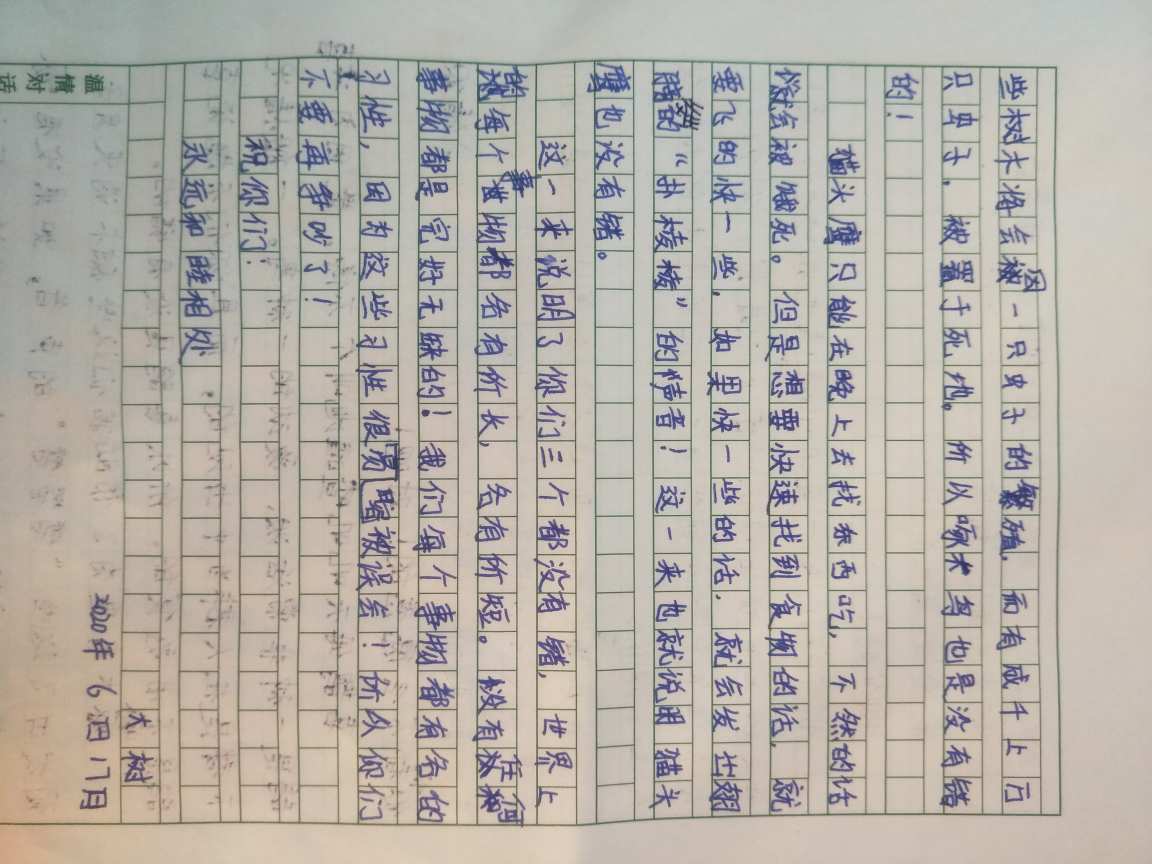 些树木将会因一只虫子的繁殖,而有成千上万
只虫子,被置于死地。所以啄木鸟也是没有错
的!
猫头鹰只能在晚上去找东西吃,不然的话
就会被饿死。但是想要快速找到食物的话,就
要飞的快一些,如果快一些的话,就会发出翅
膀的“扑棱棱”的声音!这一来也就说明猫头
鹰也没有错。
这一来说明了你们三个都没有错,世界上
的每个事物都各有所长,各有所短。没有任何
事物都是完好无缺的!我们每个事物都有各的
习性,因为这些习性很易被误会!所以你们
不要再争吵了!
祝你们:
永远和睦相处
大树
2020年6月17日
温情对话